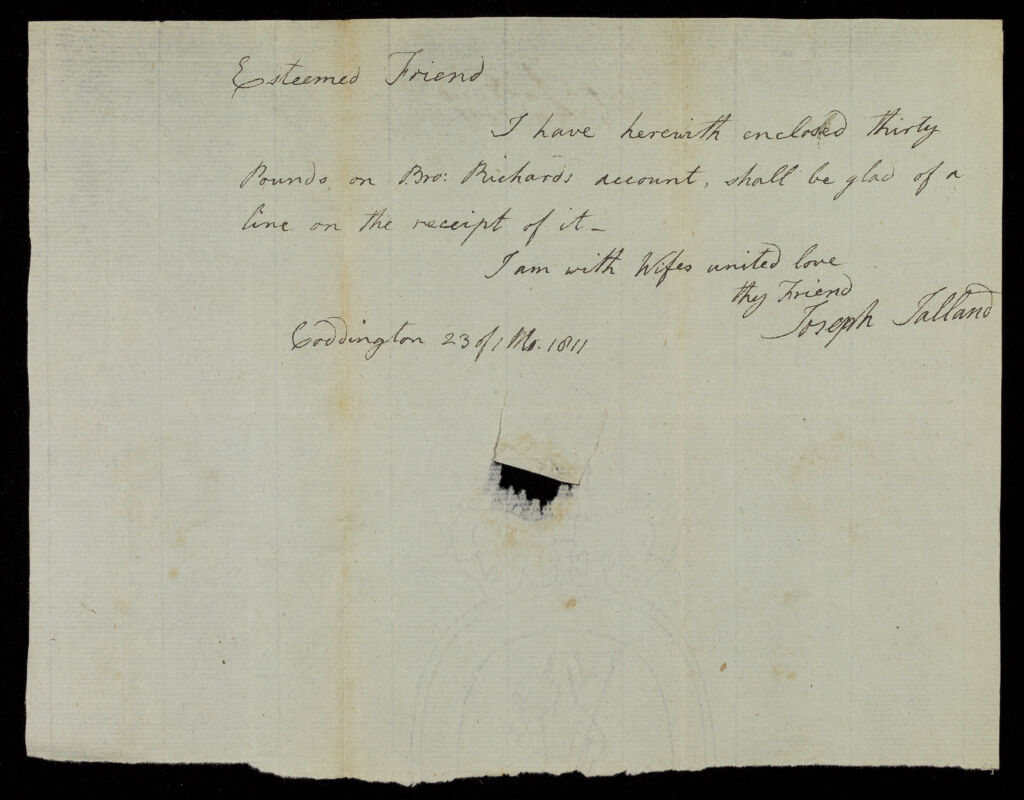 Esteemed Friend
I have herewith enclosed thirty
Pounds on Bro: Richards account, shall be glad of a
line on the receipt of it –
I am with Wifes united love
thy Friend
Joseph Talland
Coddington 23 of 1 Mo. 1811